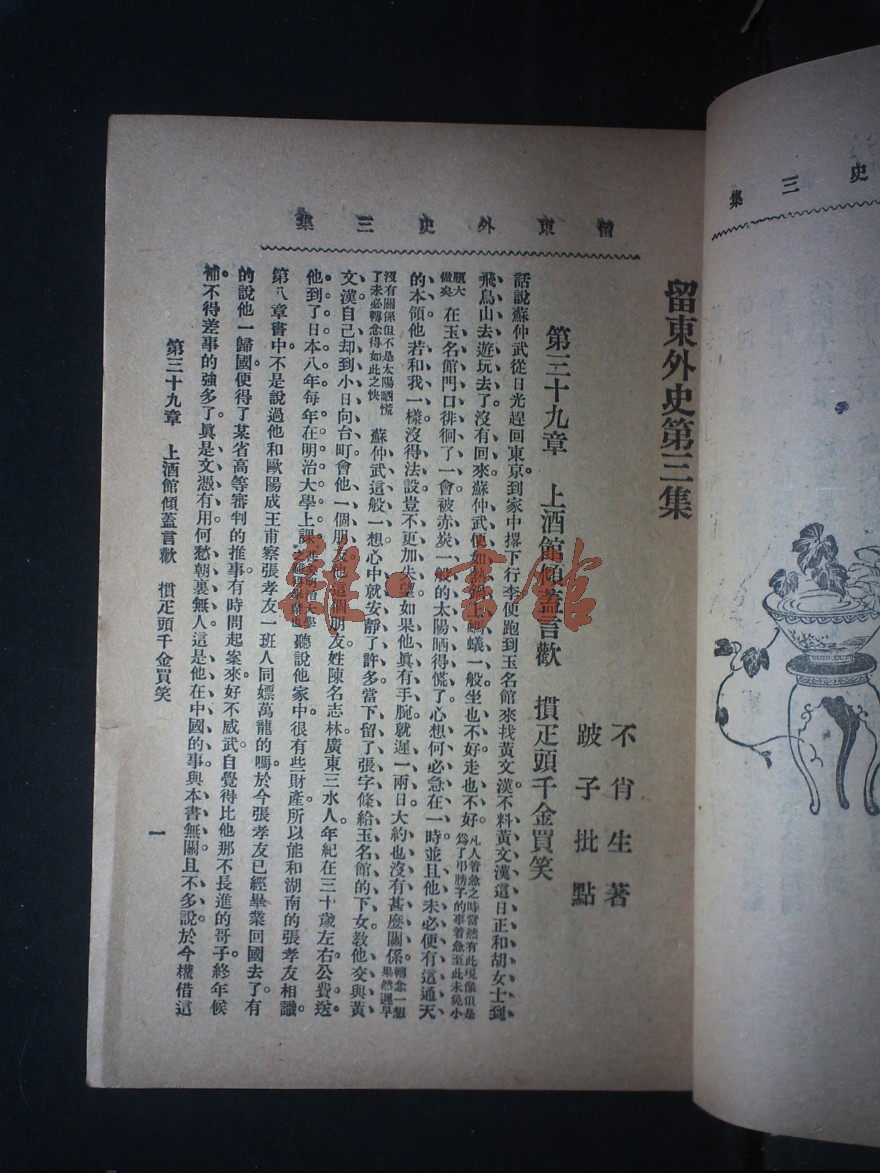 史 三 集
留東外史第三集
留東外史三集
不肖生著
跛子批點
第三十九章 上酒館傾蓋言歡 摜疋頭千金買笑
話說蘇仲武從日光趕回東京到家中撂下行李便跑到玉名館來找黃文漢不料黃文漢這日正和胡女士到
飛鳥山去遊玩去了沒有回來蘇仲武便如熱鍋上螞蟻一般坐也不好走也不好凡人着急之時當然有此現像但是爲了弔膀子的事着急至此未免小
題大做矣在玉名館門口徘徊了一會被赤炭一般的太陽晒得慌了心想何必急在一時並且他未必便有這通天
的本領他若和我一樣沒得法設豈不更加失望如果他眞有手腕就遲一兩日大約也沒有甚麽關係轉念一想果然遲早
沒有關係但不是太陽晒慌了未必轉念得如此之快蘇仲武這般一想心中就安靜了許多當下留了張字條給玉名館的下女教他交與黃
文漢自己却到小日向台町會他一個朋友他這個朋友姓陳名志林廣東三水人年紀在三十歲左右公費送
他到了日本八年每年在明治大學上課聽說他家中很有些財產所以能和湖南的張孝友相識
第八章書中不是說過他和歐陽成王甫察張孝友一班人同嫖萬龍的嗎於今張孝友已經畢業回國去了有
的說他一歸國便得了某省高等審判的推事有時間起案來好不威武自覺得比他那不長進的哥子終年候
補不得差事的強多了眞是文憑有用何愁朝裏無人這是他在中國的事與本書無關且不多說於今權借這
第三十九章 上酒館傾蓋言歡 摜疋頭千金買笑
一
雜·書館